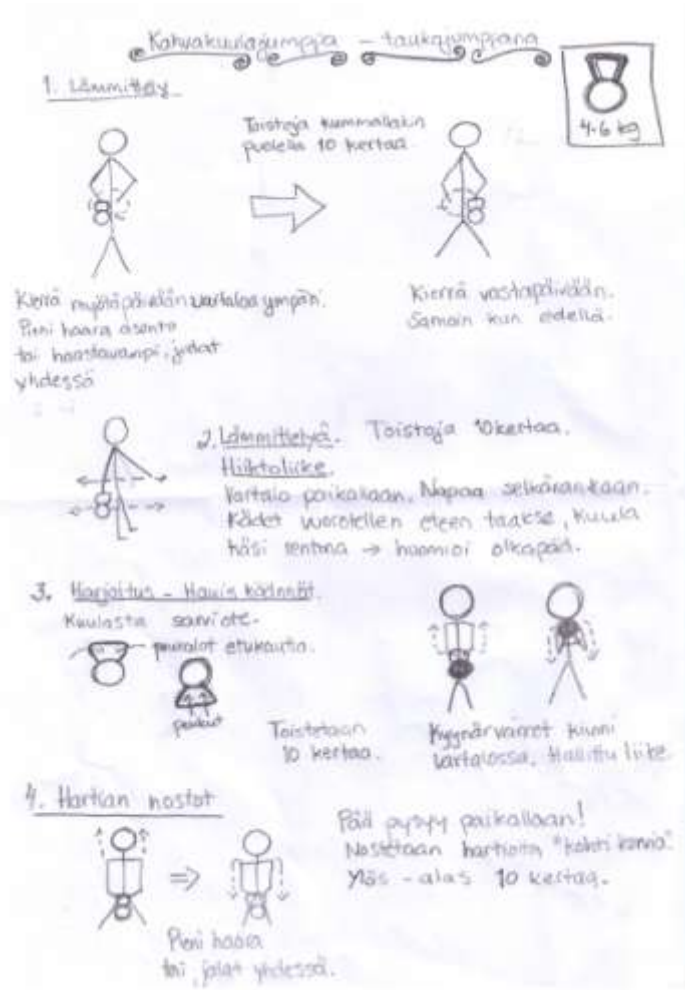 Kahvakuulajumppa – taukojumppana
4-6 kg
1. Lämmittely
Toistoja kummallakin
puolella 10 kertaa
Kierrä myötäpäivään vartaloa ympäri.
Pieni haara asento
tai haastavampi, jalat
yhdessä
Kierrä vastapäivään.
Samoin kun edellä.
2. Lämmittelyä. Toistoja 10 kertaa.
Hiihtoliike.
Vartalo paikallaan. Napaa selkärankaan.
Kädet vuorotellen eteen taakse, kuula
käsi rentona → huomioi olkapää.
3. Harjoitus - Hauis käännöt.
Kuulasta sarviote.
peukalot etukautta.
peukut
Toistetaan
10 kertaa.
Kyynärvarret kiinni
vartalossa. Hallittu liike.
4. Hartian nostot
Pää pysyy paikallaan!
Nostetaan hartioita "kohti korvia".
Ylös - alas 10 kertaa.
Pieni haara
tai jalat yhdessä.